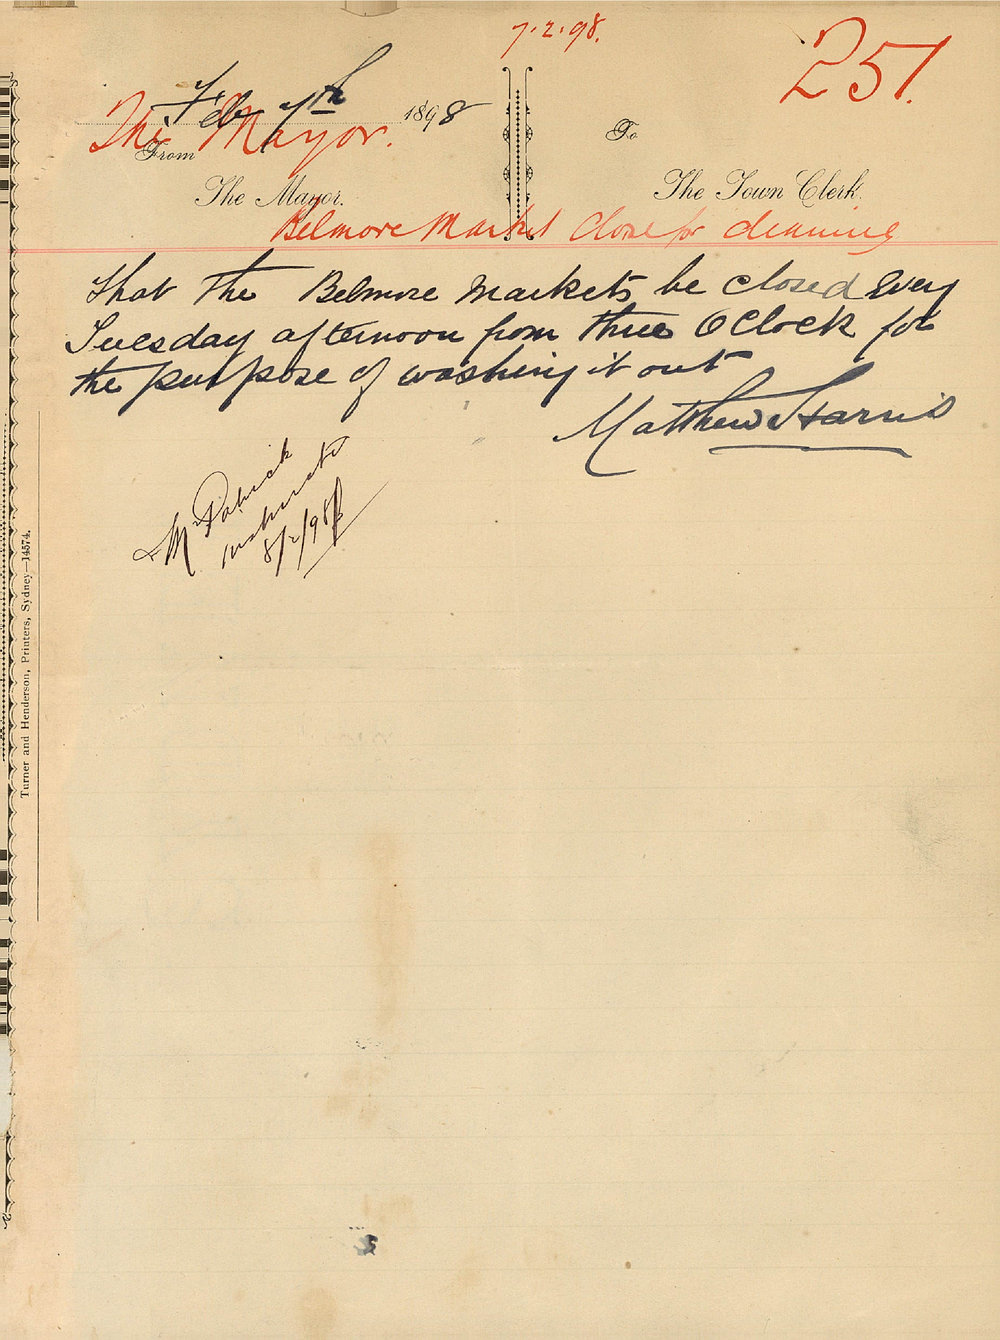 7.2.98.
251.
Feb 7th 1898
The Mayor.
From
The Mayor.
To
The Town Clerk.
Belmore Market Close for cleaning
That the Belmore Markets be closed Every
Tuesday afternoon from three OClock for
the purpose of washing it out
Matthew Harris
Mr Patrick
8/2/98
Turner and Henderson, Printers, Sydney—14574.